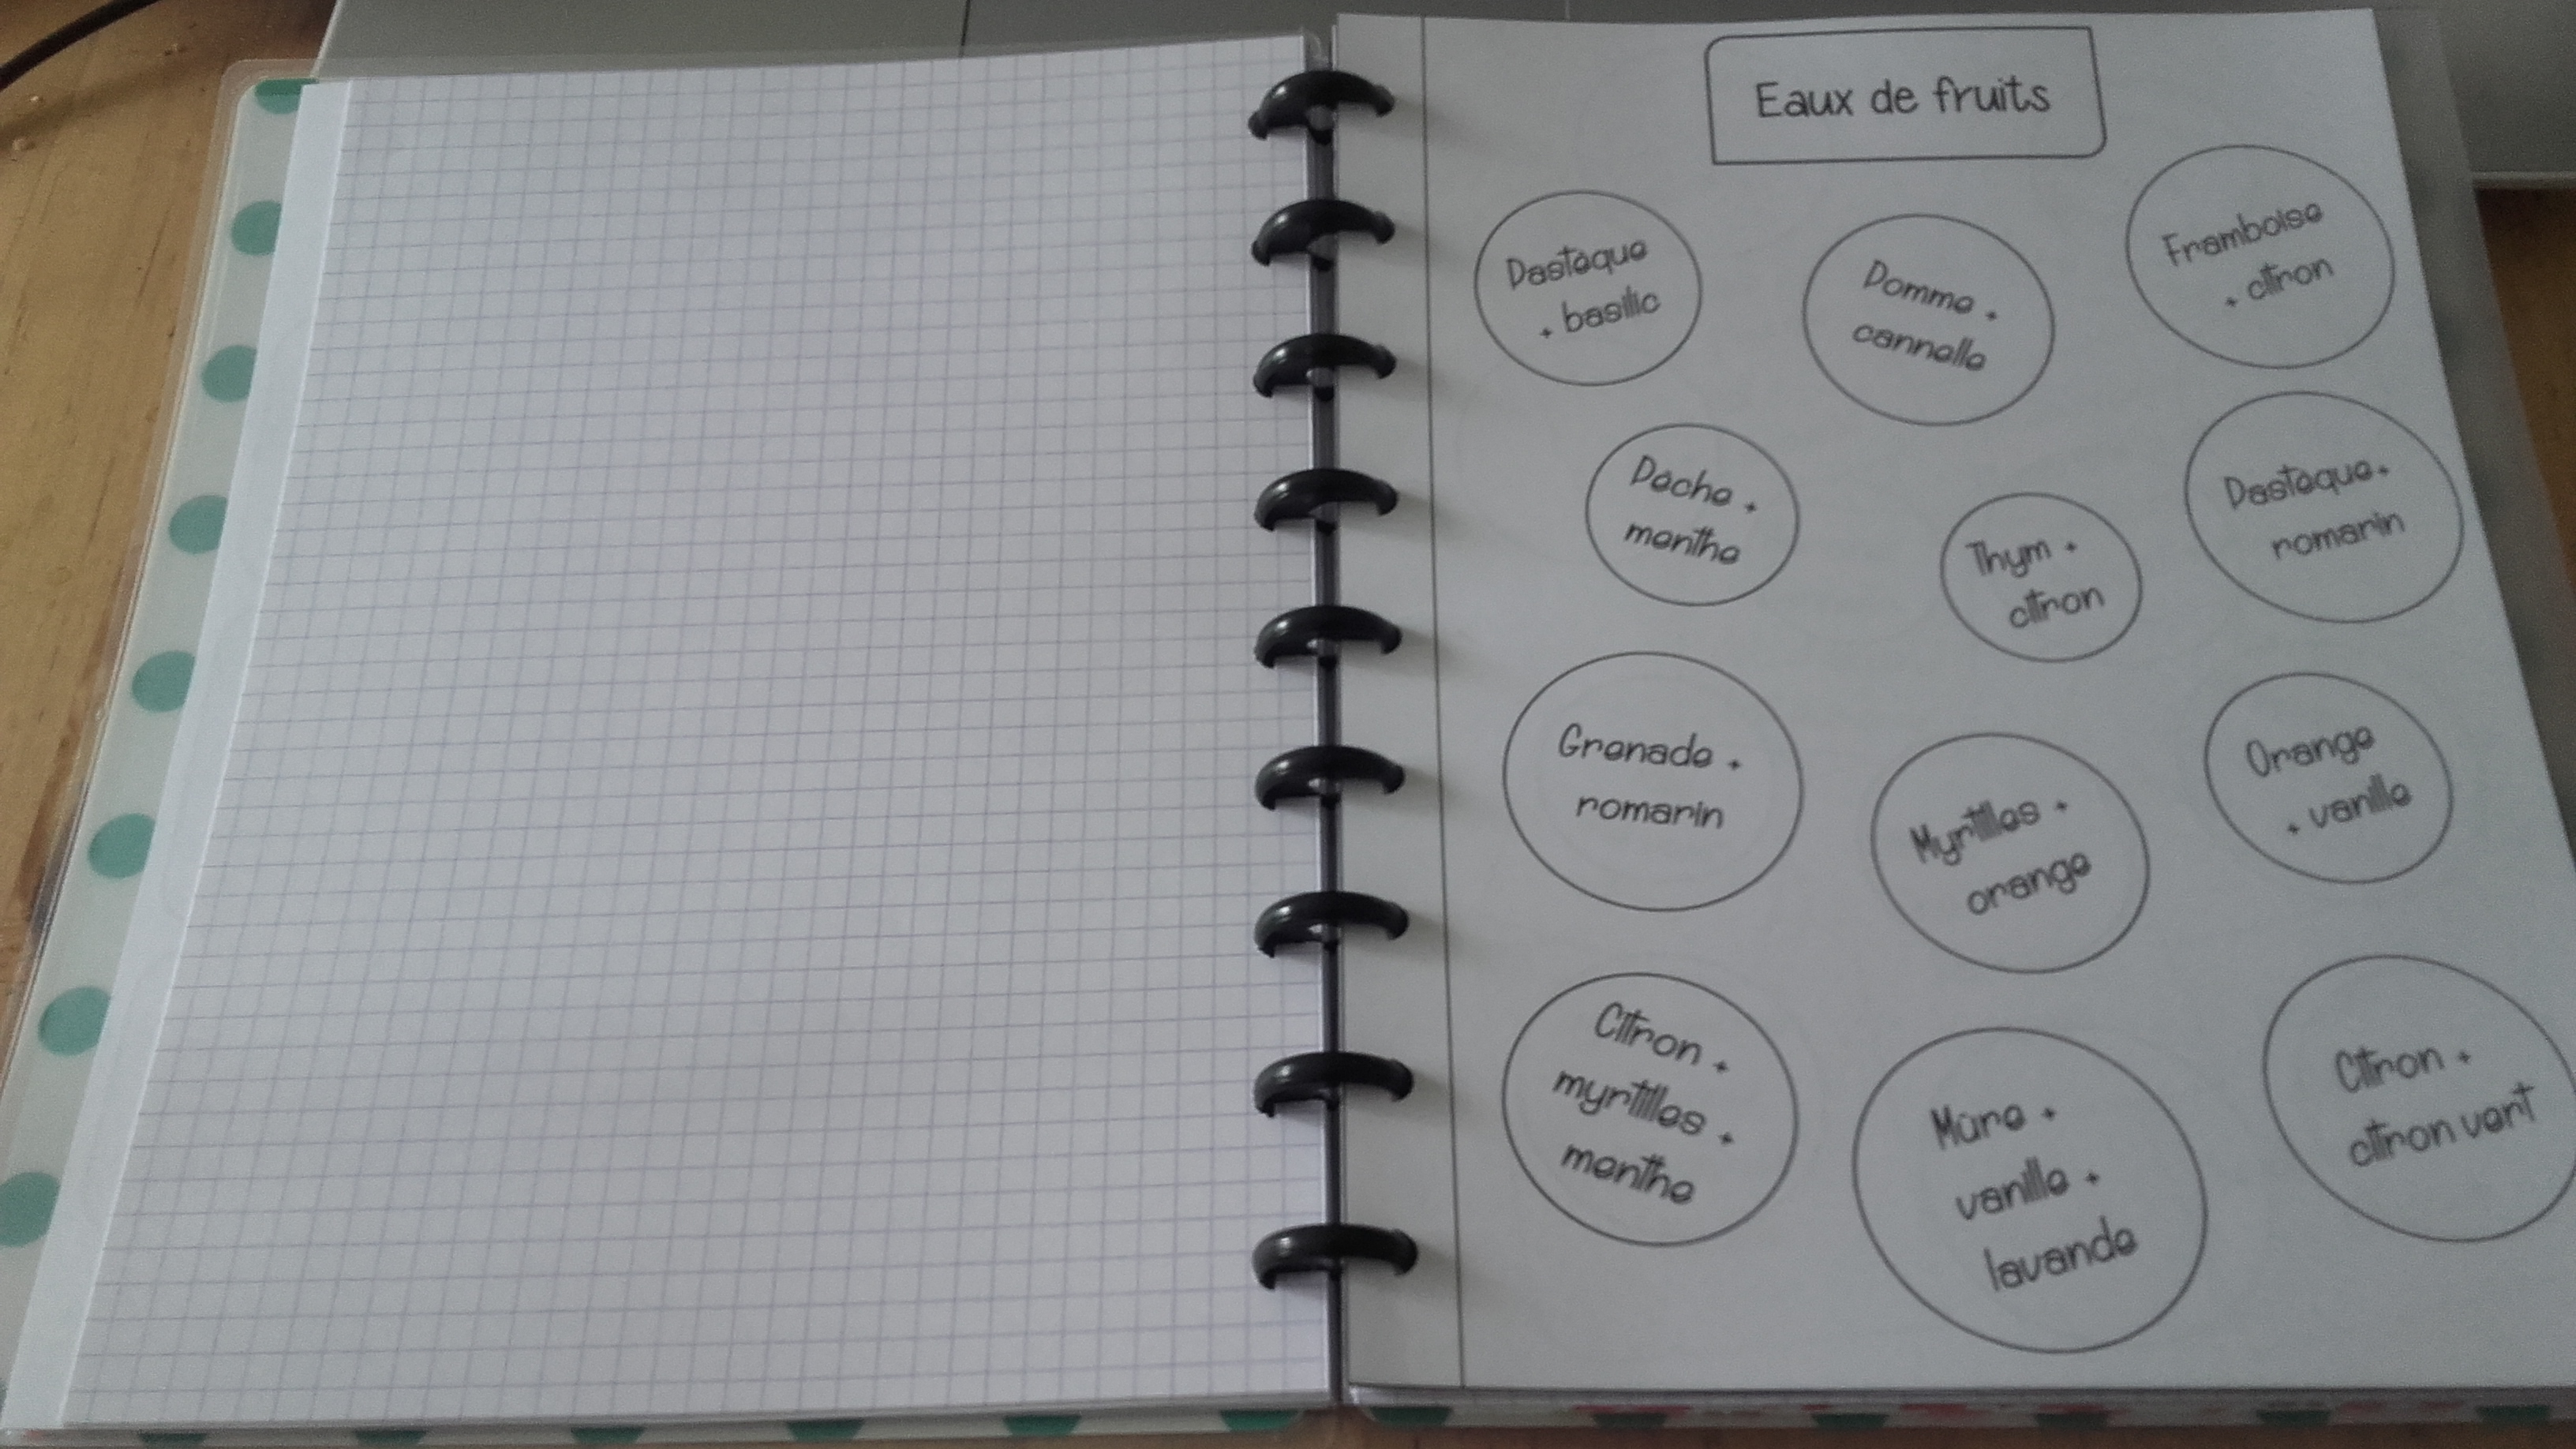 Eaux de fruits
Pastèque
+ basilic
Pomme +
cannelle
Framboise
+ citron
Pêche +
menthe
Thym +
citron
Pastèque +
romarin
Grenade +
romarin
Myrtilles +
orange
Orange
+ vanille
Citron +
myrtilles +
menthe
Mûre +
vanille +
lavande
Citron +
citron vert